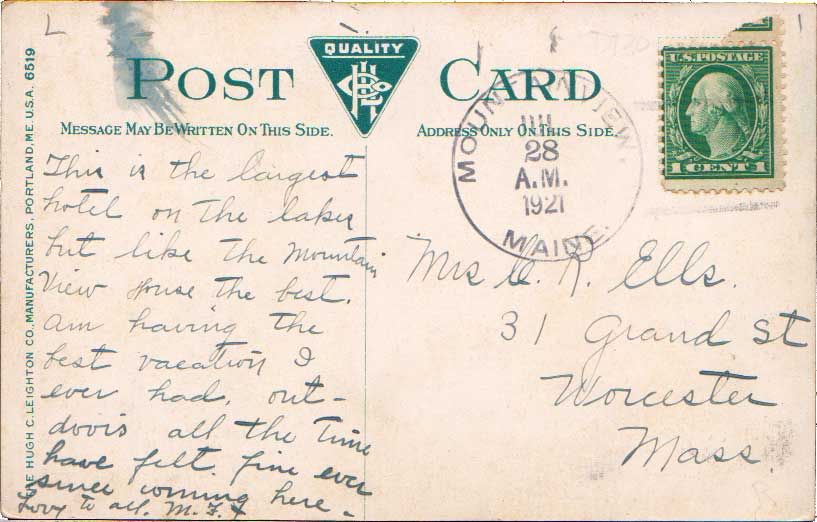 POST CARD
QUALITY
MESSAGE MAY BE WRITTEN ON THIS SIDE.
ADDRESS ONLY ON THIS SIDE.
THE HUGH C. LEIGHTON CO. MANUFACTURERS, PORTLAND, ME. U.S.A. 6519
This is the largest
hotel on the lakes
but like the Mountain
View House the best.
am having the
best vacation I
ever had, out-
doors all the time
have felt fine ever
since coming here -
Love to all. M.
MOUNTAINVIEW.
28
A.M.
1921
MAINE.
U.S. POSTAGE
1 CENT 1
Mrs R. Ells.
31 Grand St
Worcester
Mass.